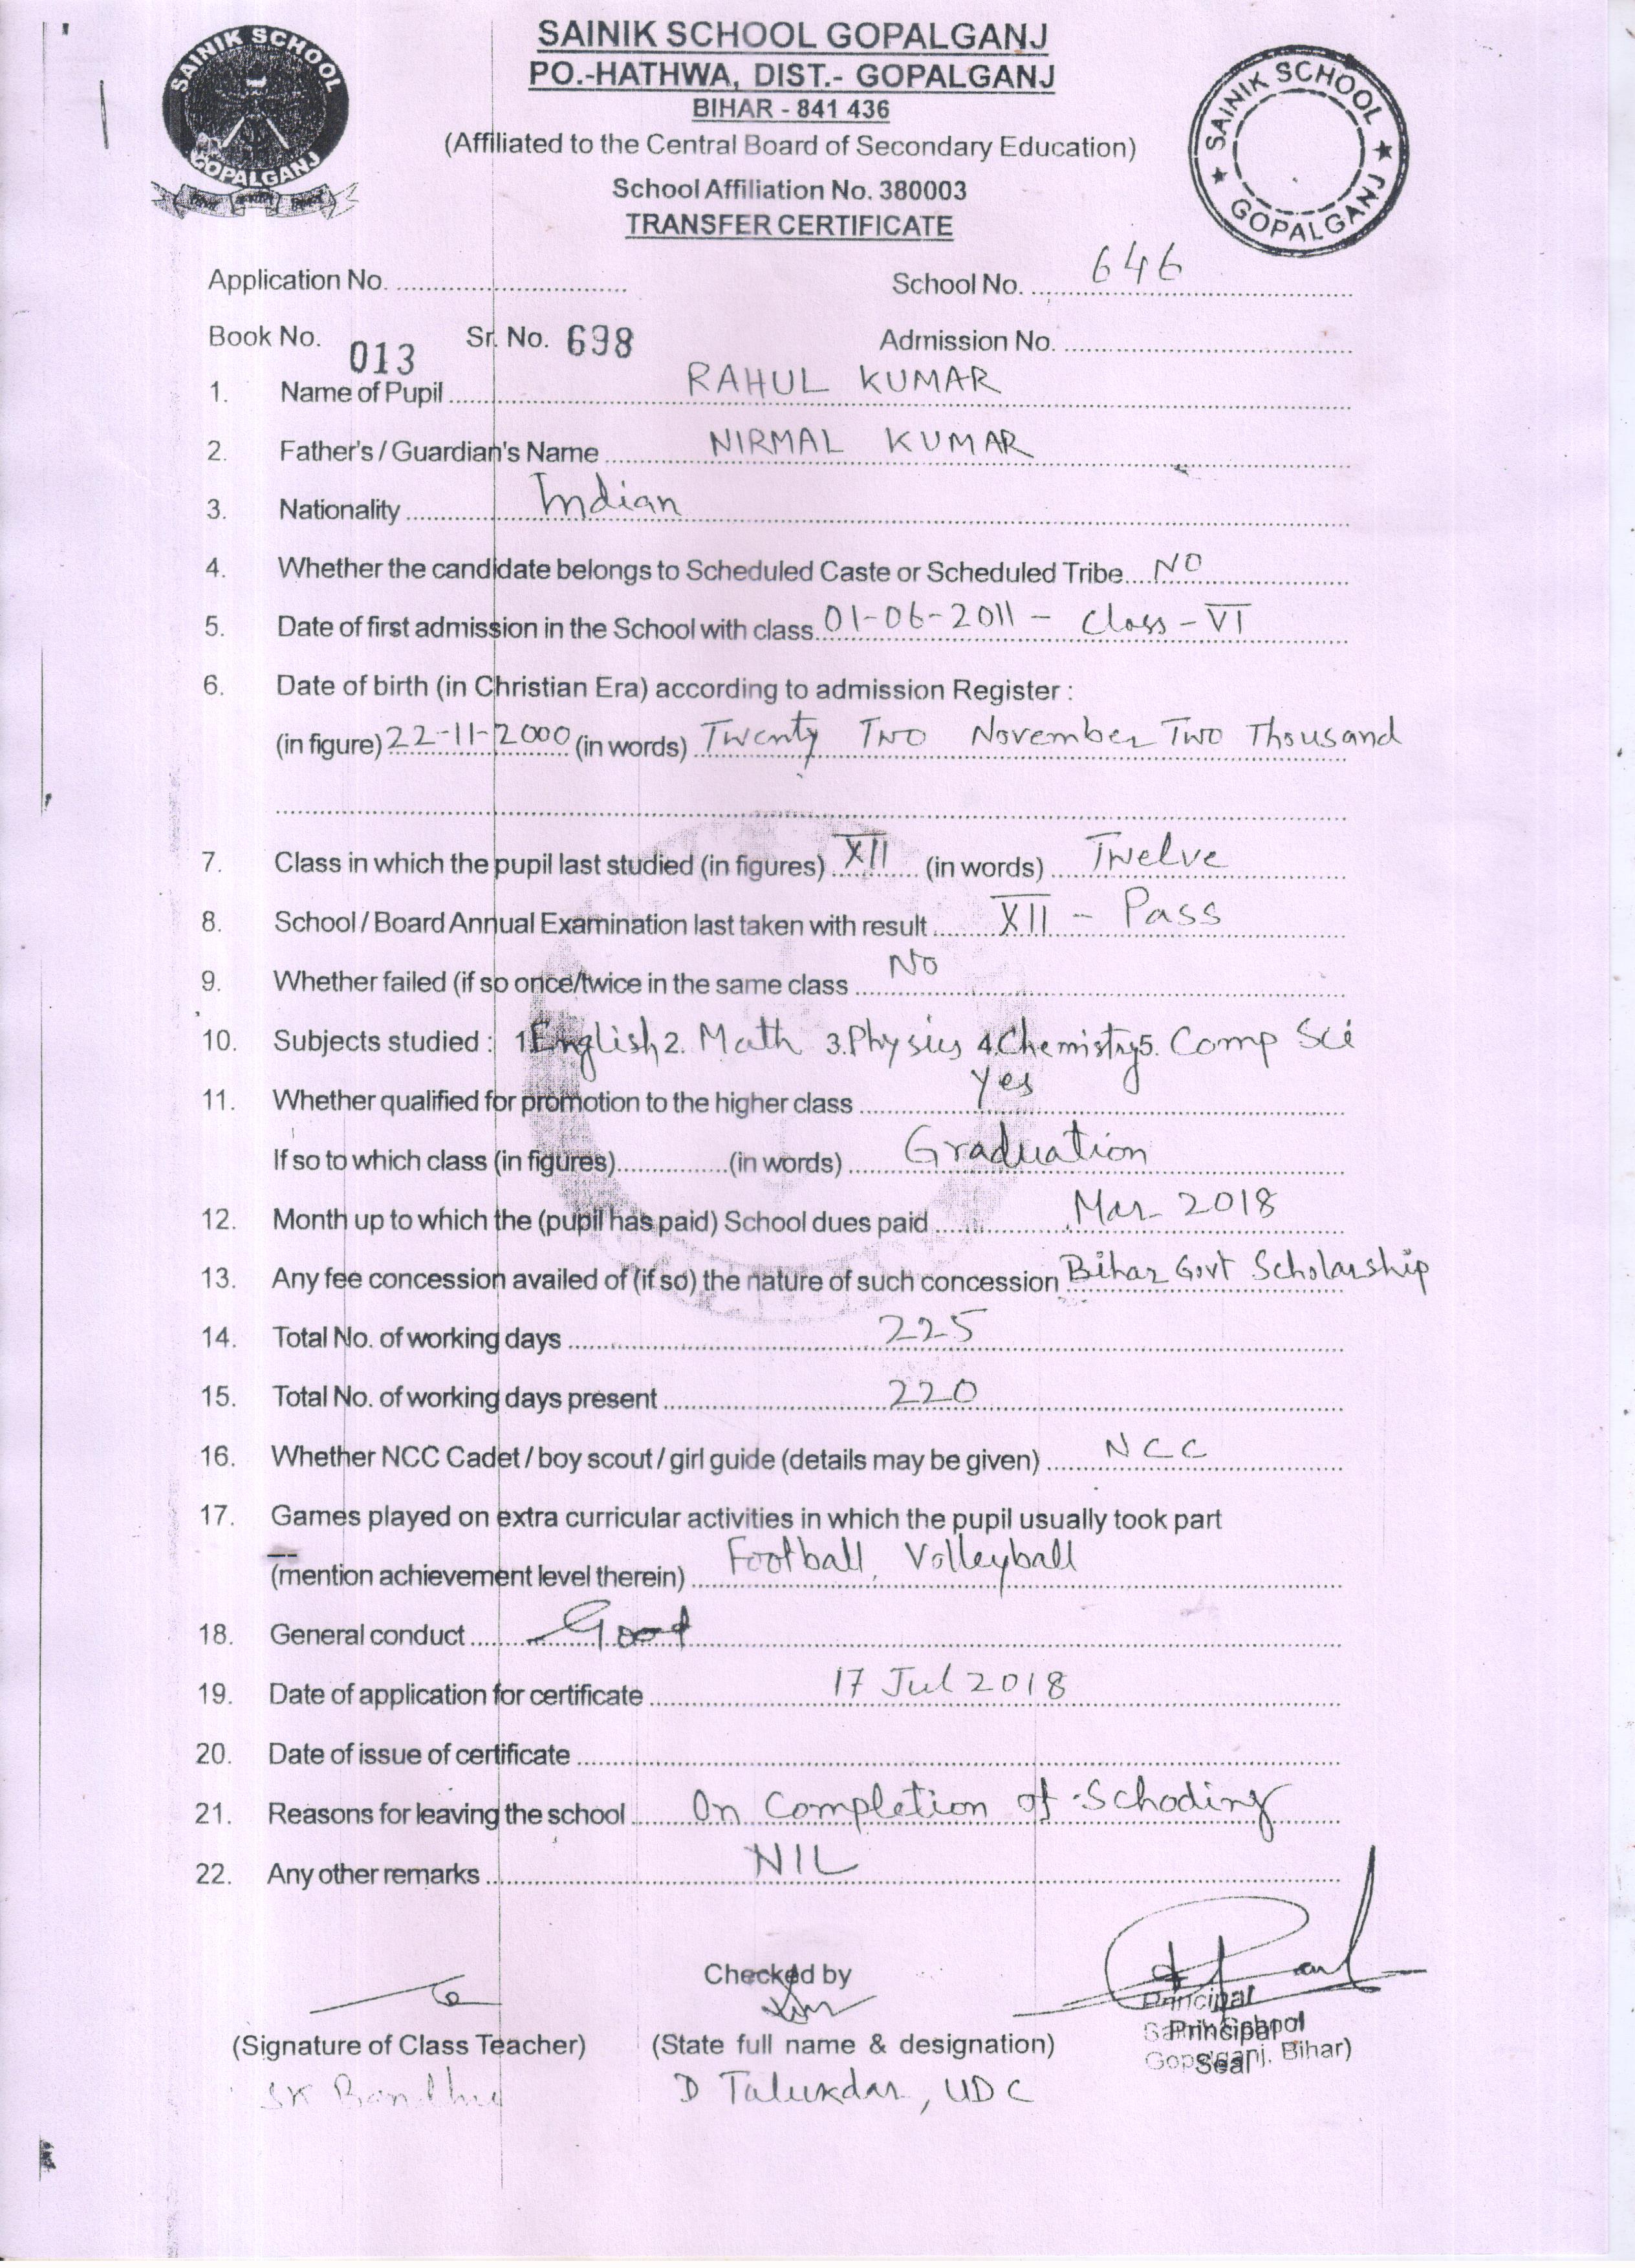 SAINIK SCHOOL GOPALGANJ
SAINIK SCHOOL GOPALGANJ
PO.-HATHWA, DIST.- GOPALGANJ
BIHAR - 841 436
(Affiliated to the Central Board of Secondary Education)
School Affiliation No. 380003
TRANSFER CERTIFICATE
★ SAINIK SCHOOL ★ GOPALGANJ
Application No. .............................. School No. 646
Book No. 013 Sr. No. 698 Admission No. ..............................
1. Name of Pupil RAHUL KUMAR
2. Father's / Guardian's Name NIRMAL KUMAR
3. Nationality Indian
4. Whether the candidate belongs to Scheduled Caste or Scheduled Tribe NO
5. Date of first admission in the School with class 01-06-2011 - Class - VI
6. Date of birth (in Christian Era) according to admission Register :
(in figure) 22-11-2000 (in words) Twenty Two November Two Thousand
7. Class in which the pupil last studied (in figures) XII (in words) Twelve
8. School / Board Annual Examination last taken with result XII - Pass
9. Whether failed (if so once/twice in the same class No
10. Subjects studied : 1. English 2. Math 3. Physics 4. Chemistry 5. Comp Sci
11. Whether qualified for promotion to the higher class Yes
If so to which class (in figures) .............. (in words) Graduation
12. Month up to which the (pupil has paid) School dues paid Mar 2018
13. Any fee concession availed of (if so) the nature of such concession Bihar Govt Scholarship
14. Total No. of working days 225
15. Total No. of working days present 220
16. Whether NCC Cadet / boy scout / girl guide (details may be given) NCC
17. Games played on extra curricular activities in which the pupil usually took part
(mention achievement level therein) Football, Volleyball
18. General conduct Good
19. Date of application for certificate 17 Jul 2018
20. Date of issue of certificate ..............................
21. Reasons for leaving the school On Completion of Schooling
22. Any other remarks NIL
Checked by
(Signature of Class Teacher) (State full name & designation) Principal
Seal
Principal
Sainik School
Gopalganj, Bihar)
SK Bandhu D Talukdar, UDC